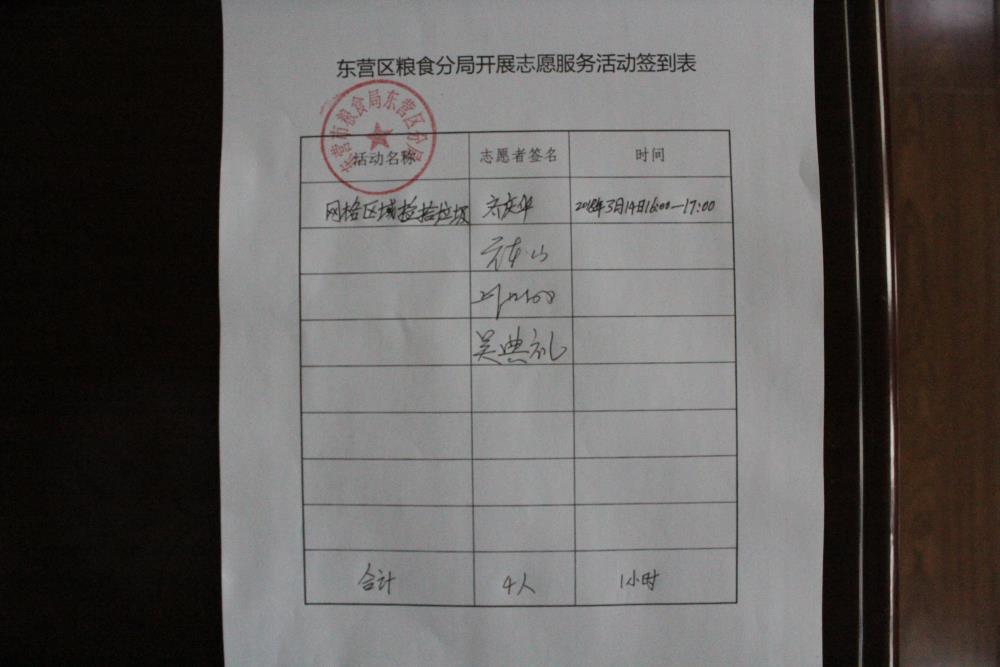 东营区粮食分局开展志愿服务活动签到表
东营市粮食局东营区分局
活动名称 志愿者签名 时间
网格区域捡拾垃圾 2018年3月14日16:00—17:00
吴典礼
合计 4人 1小时